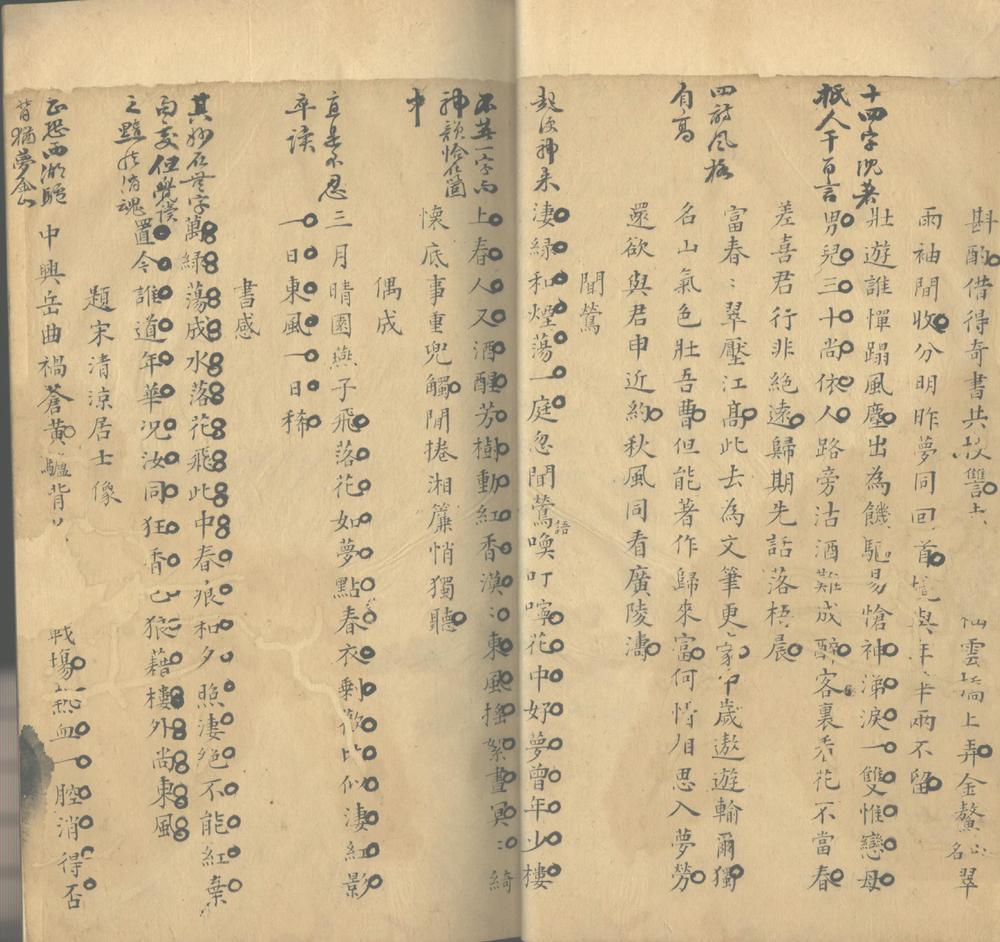 斟酌借得奇書共校讐
仙雲
上弄金鰲山名翠
雨袖間收分明昨夢同回首
與年
雨不留
十四字沉著
壯遊誰憚蹋風塵出為饑驅易愴神涕淚一雙惟戀母
抵人千百言
男兒三十尚依人路旁沽酒難成醉客裏看花不當春
差喜君行非絕遠歸期先話落梧晨
四詩風格
富春〻翠壓江髙此去為文筆更豪
歲遨遊輸爾獨
自高
名山氣色壯吾曹但能著作歸來富何惜相思入夢勞
還欲與君申近約秋風同看廣陵濤
聞鶯
起後神來
淒綠和煙蕩一庭忽聞鶯語喚叮嚀花中好夢曾年少樓
不若一字而
上春人又酒醒芳樹動紅香漠〻東風搖絮晝冥〻綺
神韻恰在箇
懷底事重兜觸閒捲湘簾悄獨聽
中
偶成
直是不忍
三月晴園燕子飛落花如夢點春衣剩
比似淒紅影
卒讀
一日東風一日稀
書感
其妙在無字
萬綠蕩成水落花飛此中春痕和夕照淒絕不能紅棄
句處但覺侯
置令誰道年華况汝同狂香已狼藉樓外尚東風
之黯然消魂
題宋清涼居士像
正恐西湖驢
中興岳曲禍蒼黄驢背
戰場熱血一腔消得否
背猶夢金山